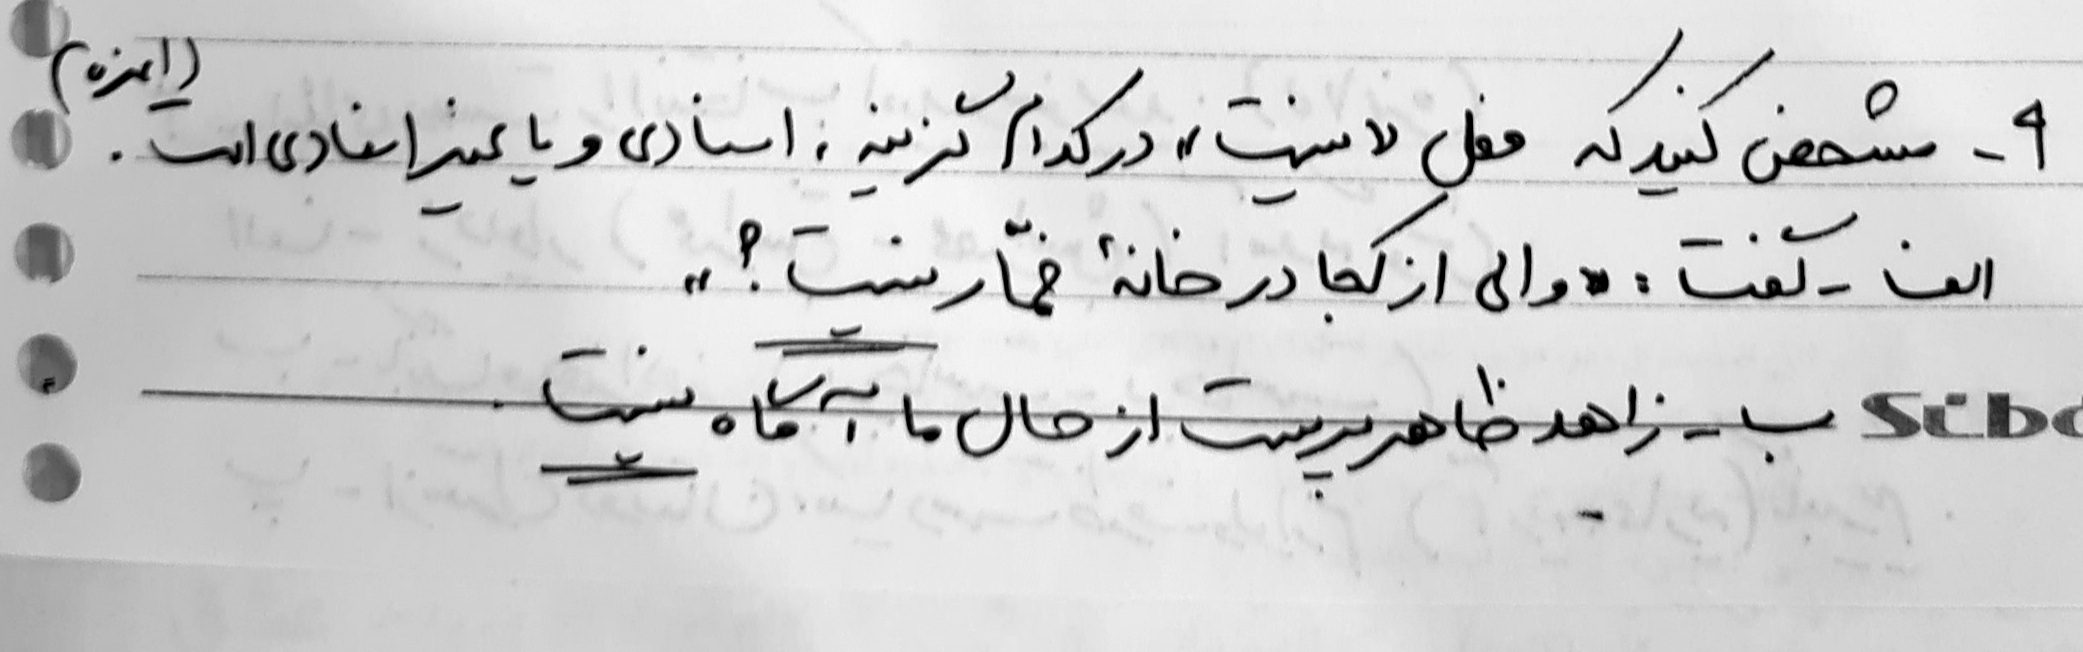 (۱نمره)
۹- مشخص کنید که فعل «نیست» در کدام گزینه، اسنادی و یا غیراسنادی است.
الف - گفت: «والی از کجا در خانهٔ خمّار نیست؟»
ب - زاهد ظاهر پرست از حال ما آگاه نیست.